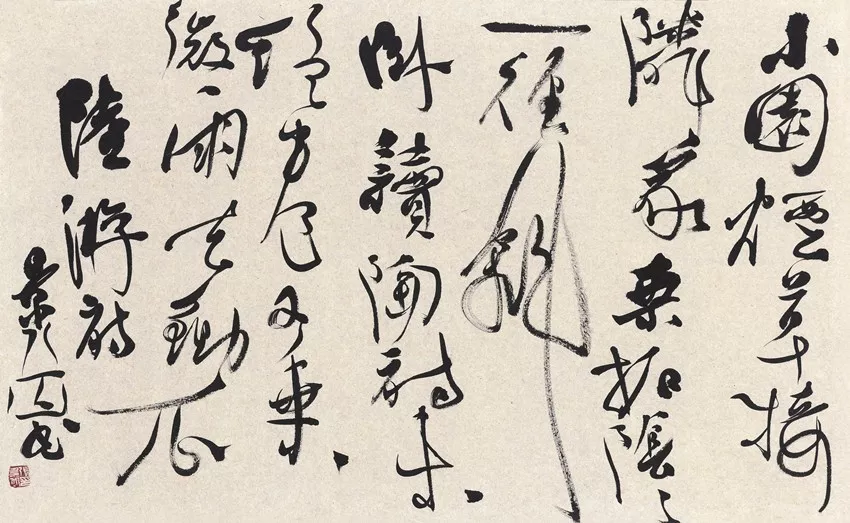 小園煙草接
隣家桑柘陰〻
一徑斜
卧讀陶詩未
又乘
微雨去鋤瓜
陸游詩
書